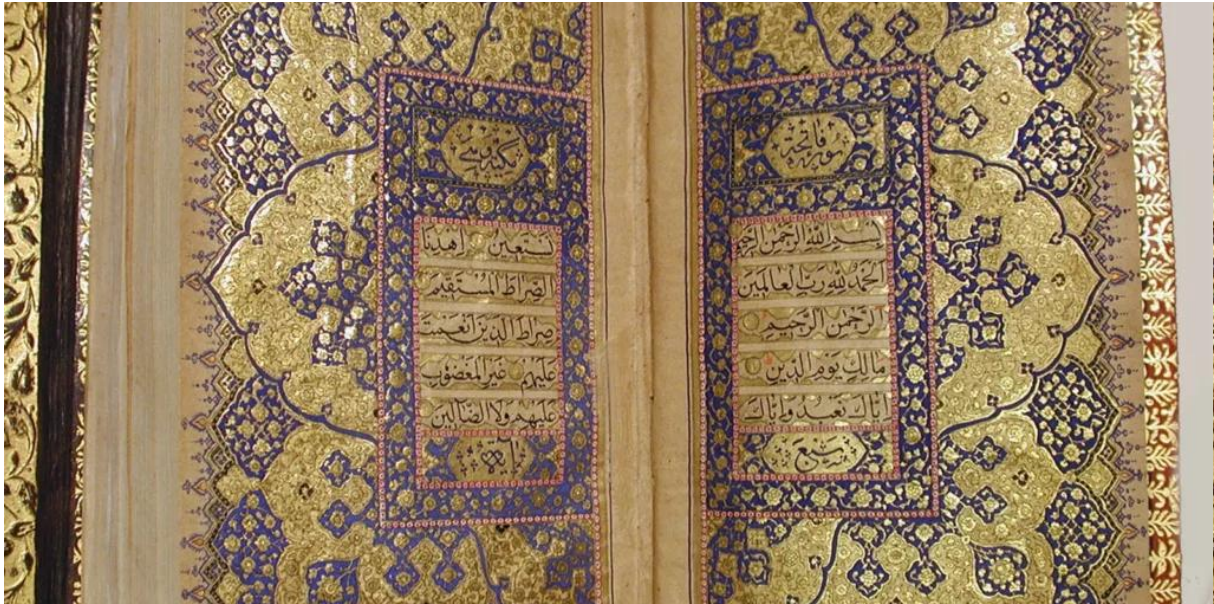 سورة فاتحة
بِسْمِ اللهِ الرَّحْمٰنِ الرَّحِيمِ
اَلْحَمْدُ لِلّٰهِ رَبِّ الْعَالَمِينَ
الرَّحْمٰنِ الرَّحِيمِ
مَالِكِ يَوْمِ الدِّينِ
إِيَّاكَ نَعْبُدُ وَإِيَّاكَ
سبع
نَسْتَعِينُ اِهْدِنَا
الصِّرَاطَ الْمُسْتَقِيمَ
صِرَاطَ الَّذِينَ اَنْعَمْتَ
عَلَيْهِمْ غَيْرِ الْمَغْضُوبِ
عَلَيْهِمْ وَلَا الضَّالِّينَ